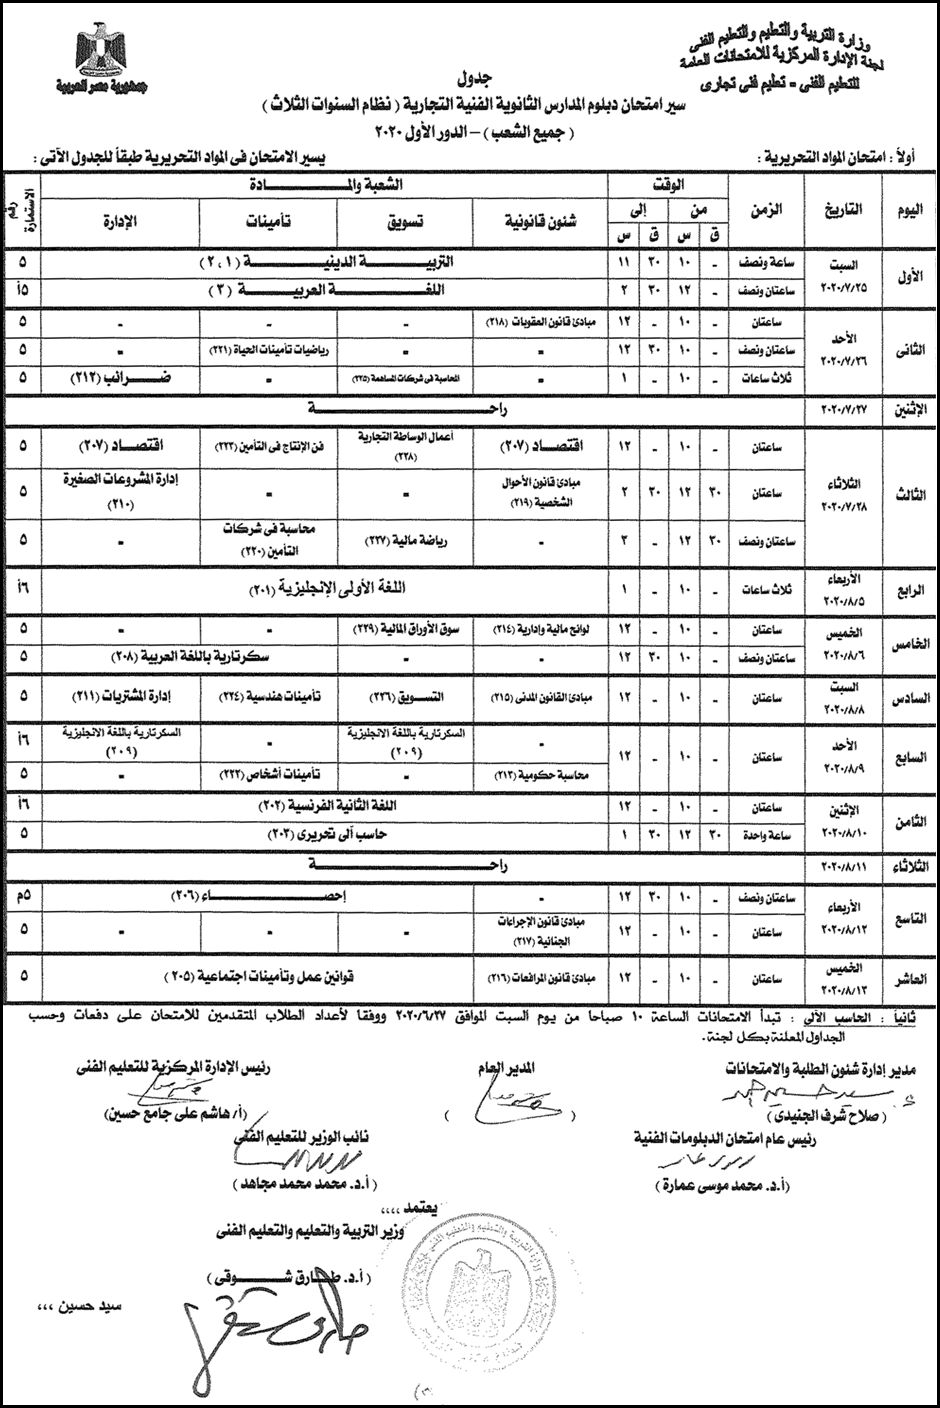 وزارة التربية والتعليم والتعليم الفنى
لجنة الإدارة المركزية للامتحانات العامة
للتعليم الفنى - تعليم فنى تجارى
جمهورية مصر العربية
جدول
سير امتحان دبلوم المدارس الثانوية الفنية التجارية ( نظام السنوات الثلاث )
( جميع الشعب ) - الدور الأول ٢٠٢٠
أولاً : امتحان المواد التحريرية : يسير الامتحان فى المواد التحريرية طبقاً للجدول الآتى :
اليوم التاريخ الزمن الوقت الشعبة والمــــادة رقم الاستمارة
من إلى شئون قانونية تسويق تأمينات الإدارة
ق س ق س
الأول السبت ٢٠٢٠/٧/٢٥ ساعة ونصف - ١٠ ٣٠ ١١ التربيـــة الدينيـــة (٢،١) ٥
ساعتان ونصف - ١٢ ٣٠ ٢ اللغـــة العربيـــة (٣) ٥أ
الثانى الأحد ٢٠٢٠/٧/٢٦ ساعتان - ١٠ - ١٢ مبادئ قانون العقوبات (٢١٨) - - - ٥
ساعتان ونصف - ١٠ ٣٠ ١٢ - - رياضيات تأمينات الحياة (٢٢١) - ٥
ثلاث ساعات - ١٠ - ١ - المحاسبة فى شركات المساهمة (٢٢٥) - ضـــرائب (٢١٢) ٥
الإثنين ٢٠٢٠/٧/٢٧ راحـــــة
الثالث الثلاثاء ٢٠٢٠/٧/٢٨ ساعتان - ١٠ - ١٢ اقتصـاد (٢٠٧) أعمال الوساطة التجارية (٢٢٨) فن الإنتاج فى التأمين (٢٢٣) اقتصـاد (٢٠٧) ٥
ساعتان ٣٠ ١٢ ٣٠ ٢ مبادئ قانون الأحوال الشخصية (٢١٩) - - إدارة المشروعات الصغيرة (٢١٠) ٥
ساعتان ونصف ٣٠ ١٢ - ٣ - رياضة مالية (٢٢٧) محاسبة فى شركات التأمين (٢٢٠) - ٥
الرابع الأربعاء ٢٠٢٠/٨/٥ ثلاث ساعات - ١٠ - ١ اللغة الأولى الإنجليزية (٢٠١) ٦أ
الخامس الخميس ٢٠٢٠/٨/٦ ساعتان - ١٠ - ١٢ لوائح مالية وإدارية (٢١٤) سوق الأوراق المالية (٢٢٩) - - ٥
ساعتان ونصف - ١٠ ٣٠ ١٢ - - سكرتارية باللغة العربية (٢٠٨) ٥
السادس السبت ٢٠٢٠/٨/٨ ساعتان - ١٠ - ١٢ مبادئ القانون المدنى (٢١٥) التسويق (٢٢٦) تأمينات هندسية (٢٢٤) إدارة المشتريات (٢١١) ٥
السابع الأحد ٢٠٢٠/٨/٩ ساعتان - ١٠ - ١٢ - السكرتارية باللغة الانجليزية (٢٠٩) - السكرتارية باللغة الانجليزية (٢٠٩) ٦أ
محاسبة حكومية (٢١٣) - تأمينات أشخاص (٢٢٢) - ٥
الثامن الإثنين ٢٠٢٠/٨/١٠ ساعتان - ١٠ - ١٢ اللغة الثانية الفرنسية (٢٠٢) ٦أ
ساعة واحدة ٣٠ ١٢ ٣٠ ١ حاسب آلى تحريرى (٢٠٣) ٥
الثلاثاء ٢٠٢٠/٨/١١ راحـــــة
التاسع الأربعاء ٢٠٢٠/٨/١٢ ساعتان ونصف - ١٠ ٣٠ ١٢ - إحصـــــاء (٢٠٦) ٥م
ساعتان - ١٠ - ١٢ مبادئ قانون الإجراءات الجنائية (٢١٧) - - - ٥
العاشر الخميس ٢٠٢٠/٨/١٣ ساعتان - ١٠ - ١٢ مبادئ قانون المرافعات (٢١٦) قوانين عمل وتأمينات اجتماعية (٢٠٥) ٥
ثانياً : الحاسب الآلى : تبدأ الامتحانات الساعة ١٠ صباحا من يوم السبت الموافق ٢٠٢٠/٦/٢٧ ووفقا لأعداد الطلاب المتقدمين للامتحان على دفعات وحسب
الجداول المعلنة بكل لجنة.
مدير إدارة شئون الطلبة والامتحانات المدير العام رئيس الإدارة المركزية للتعليم الفنى
( صلاح شرف الجنيدى ) ( ) ( أ/ هاشم على جامع حسين )
رئيس عام امتحان الدبلومات الفنية نائب الوزير للتعليم الفنى
( أ.د. محمد موسى عمارة ) ( أ.د. محمد محمد مجاهد )
يعتمد ،،،،
وزير التربية والتعليم والتعليم الفنى
( أ.د. طـارق شـــوقى )
سيد حسين ،،،